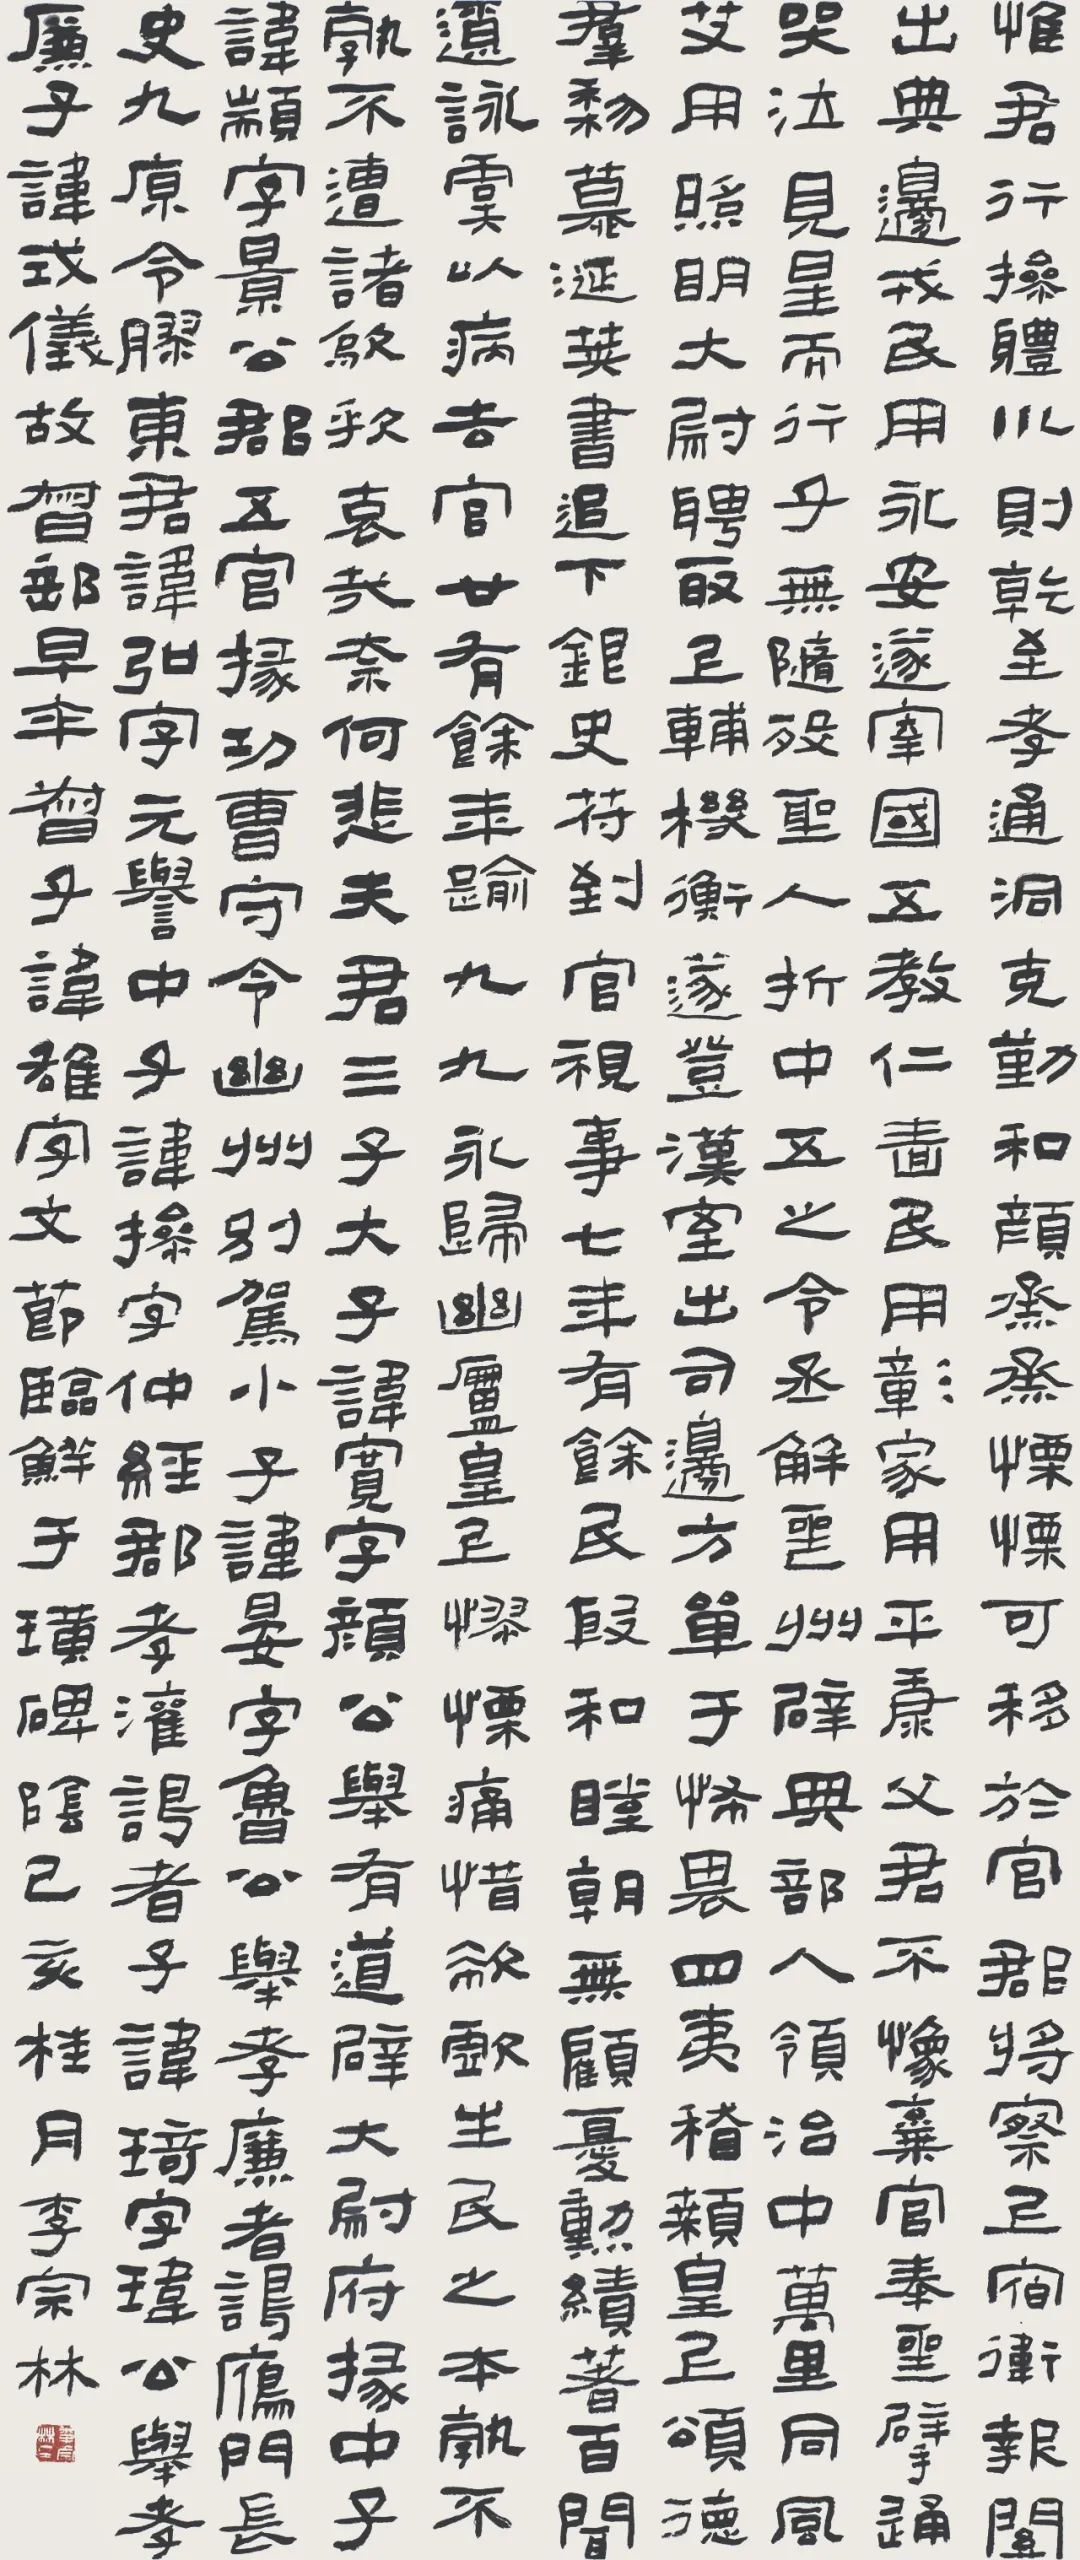 惟君行操體川則乾至孝通洞克勤和顔烝烝慄慄可移於官郡將察上宿衛報關
出典邊戎民用永安遂窂國五教仁書民用彰家用平康父君不像棄官奉聖擗踊
哭泣見星而行乎無隨殁聖人折中五之令丞解匨州辟典部入領治中萬里同風
艾用照明大尉聘取上輔機衡遂登漢室出司邊方單于怖畏四夷稽顙皇上頌德
羣黎慕涎英書追下銀史符到官視事七年有餘民殷和睦朝無顧憂勳績著百聞
遺詠虞以病去官廿有餘年踰九九永歸幽廬皇上憀慄痛惜欷歔生民之本孰不
孰不遭諸欸欷哀哉奈何悲夫君三子大子諱寬字顔公舉有道辟大尉府掾中子
諱顓字景公郡五官掾功曹守令幽州別駕小子諱晏字魯公舉孝廉者謁鴈門長
史九原令膠東君諱弘字元譽中子諱操字仲經郡孝灌謁者子諱琦字瑋公舉孝
廉子諱戓儀故督郵早卒督子諱雄字文節臨鮮于璜碑陰己亥桂月李宗林